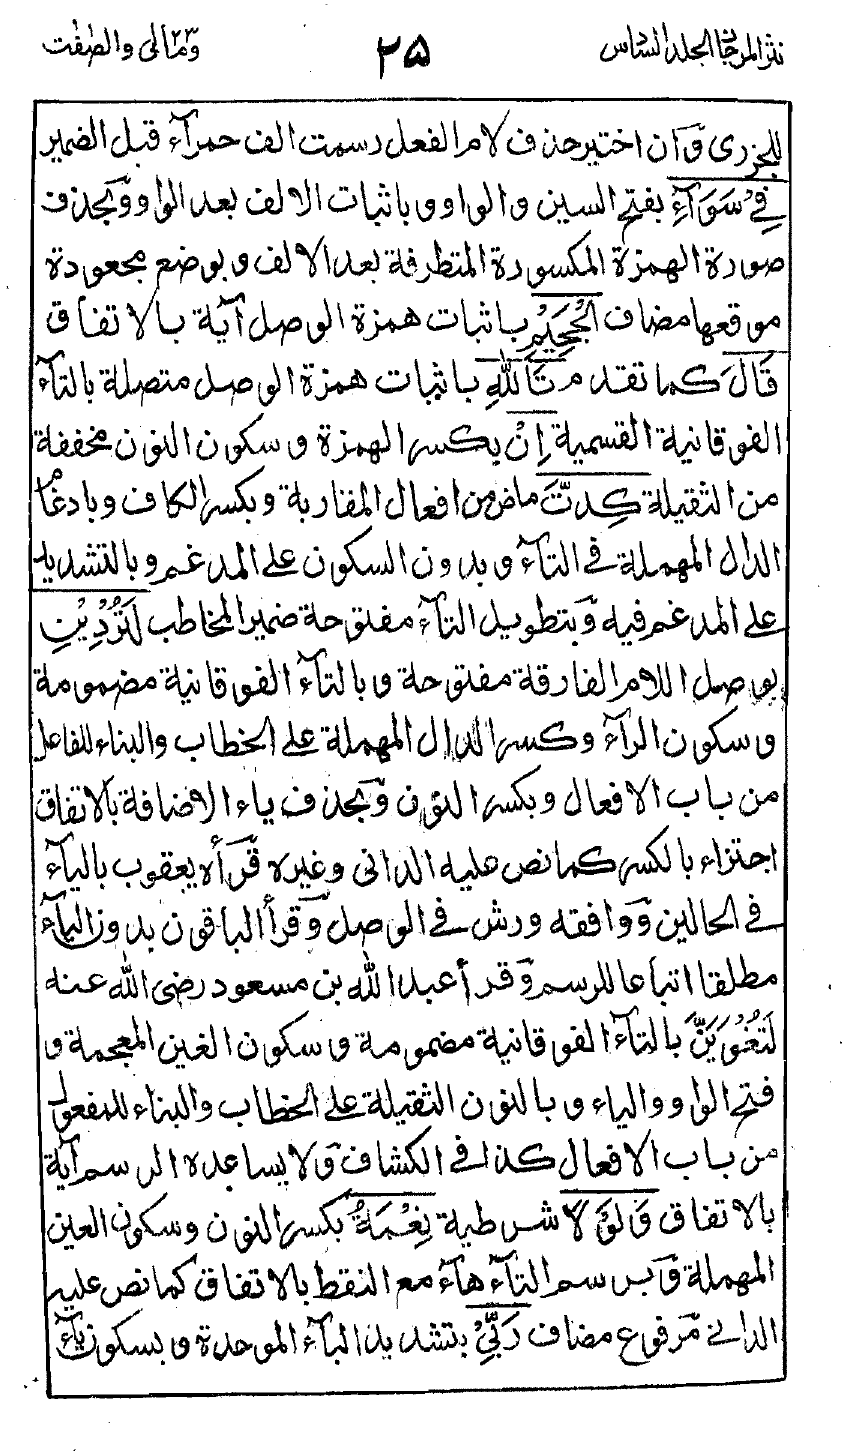 نثر المرجان الجلد السادس ۲۵ ومالی ۲۳ والصفت
للجزری وآن اختیر حذف لام الفعل رسمت الف حمرآء قبل الضمیر
فِیْ سَوَآءِ بفتح السین والواو وباثبات الالف بعد الواو وبحذف
صورة الهمزة المکسورة المتطرفة بعد الالف وبوضع مجعودة
موقعها مضاف الْجَحِیْمِ باثبات همزة الوصل آیة بالاتفاق
قَالَ کما تقدم تَاللّٰهِ باثبات همزة الوصل متصلة بالتآء
الفوقانیة القسمیة اِنْ بکسر الهمزة وسکون النون مخففة
من الثقیلة کِدْتَّ ماض من افعال المقاربة وبکسر الکاف وبادغام
الدال المهملة فی التآء وبدون السکون علی المدغم وبالتشدید
علی المدغم فیه وبتطویل التآء مفتوحة ضمیر المخاطب لَتُرْدِیْنِ
بوصل اللام الفارقة مفتوحة وبالتآء الفوقانیة مضمومة
وسکون الرآء وکسر الدال المهملة علی الخطاب والبناء للفاعل
من باب الافعال وبکسر النون وبحذف یاء الاضافة بالاتفاق
اجتزاء بالکسر کما نص علیه الدانی وغیره قرأه یعقوب بالیآء
فی الحالین ووافقه ورش فی الوصل وقرأ الباقون بدون الیآء
مطلقا اتباعا للرسم وقرأ عبد الله بن مسعود رضی الله عنه
لَتُغْوَیَنَّ بالتآء الفوقانیة مضمومة وسکون الغین المعجمة و
فتح الواو والیاء وبالنون الثقیلة علی الخطاب والبناء للمفعول
من باب الافعال کذا فی الکشاف ولا یساعده الرسم آیة
بالاتفاق وَلَوْ لَا شرطیة نِعْمَةُ بکسر النون وسکون العین
المهملة وبرسم التآء هآء مع النقط بالاتفاق کما نص علیه
الدانی مرفوع مضاف رَبِّیْ بتشدید البآء الموحدة وبسکون یآء